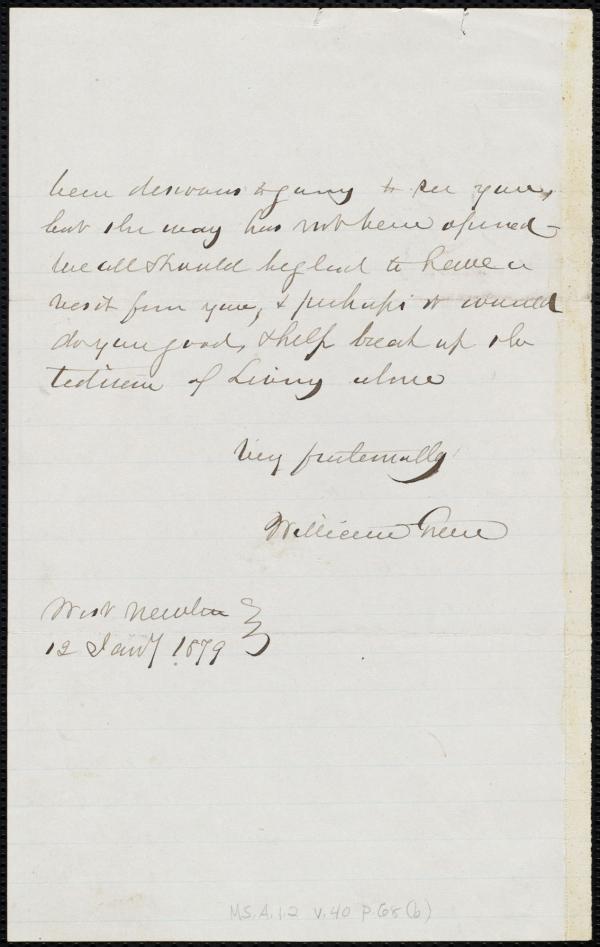 been desirous of going to see you,
but the way has not been opened -
We all should be glad to have a
visit from you, & perhaps it would
do you good, & help break up the
tedium of Living alone
Very fraternally
William
West Newton
12 Jany 1879
MS.A.1.2 v.40 p.68(b)